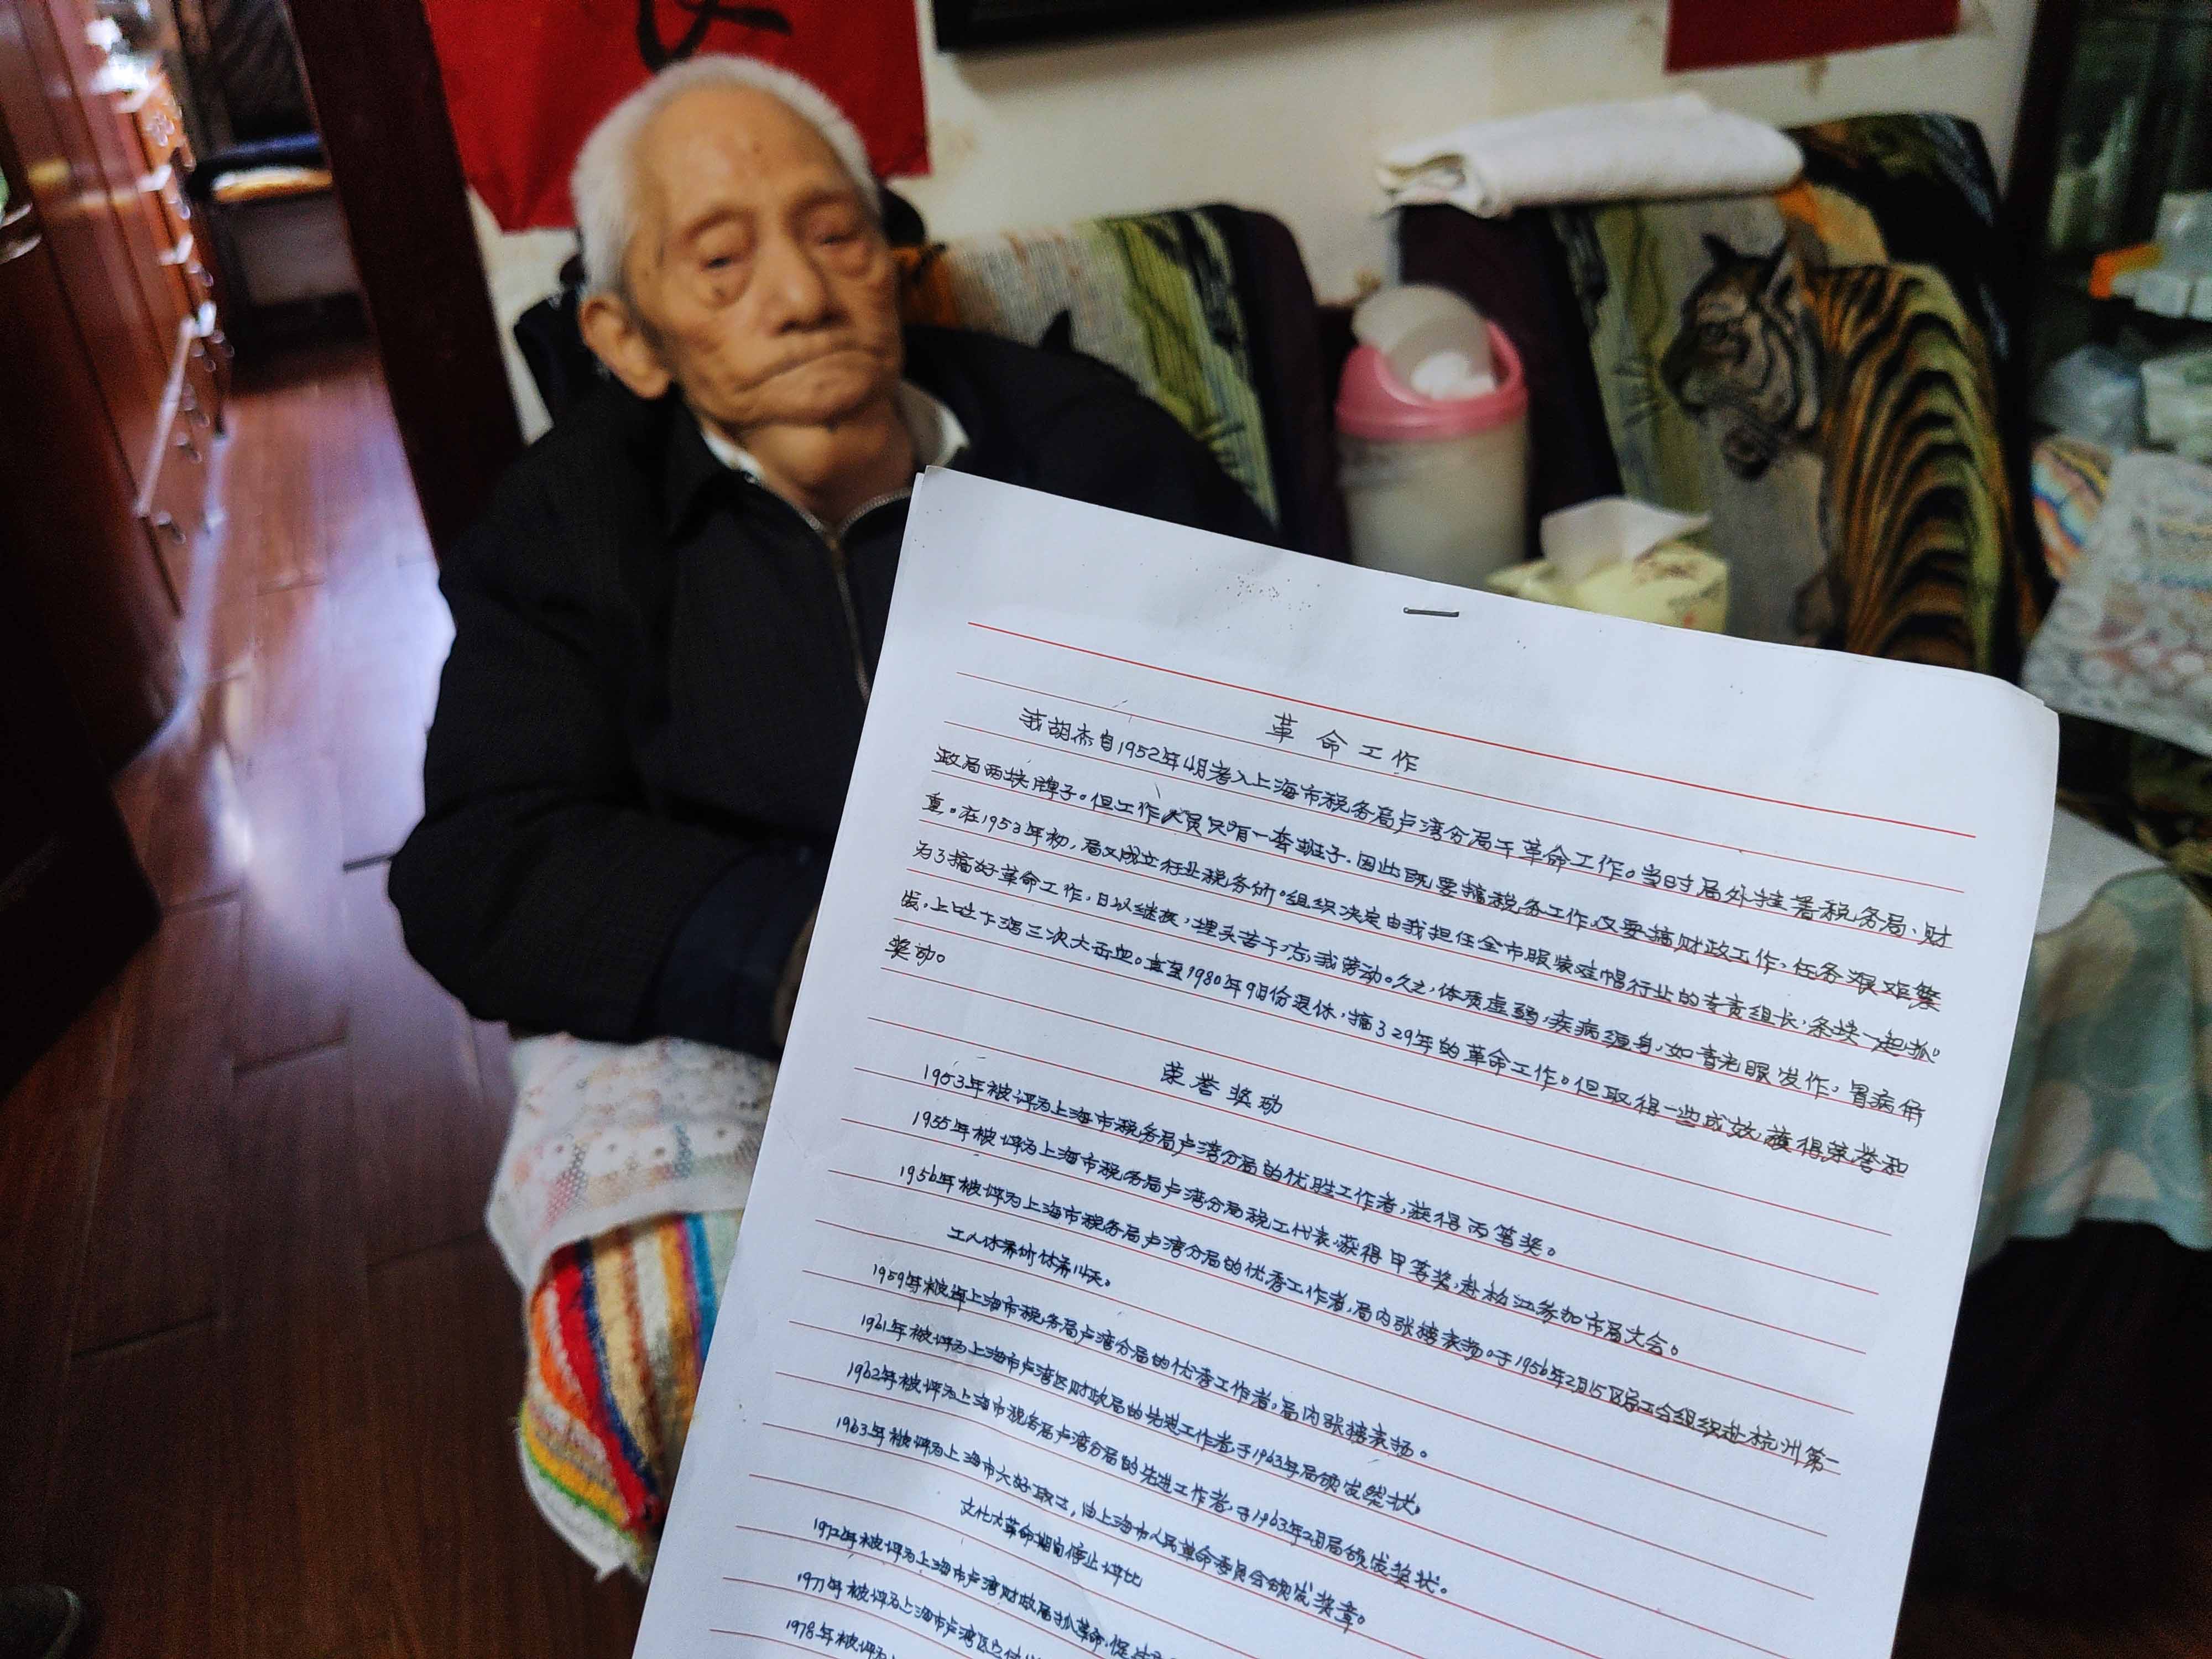 革命工作
我胡杰自1952年4月考入上海市税务局卢湾分局干革命工作。当时局外挂着税务局、财
政局两块牌子。但工作人员只有一套班子.因此既要搞税务工作,又要搞财政工作,任务艰难繁
重。在1953年初,局又成立行业税务所。组织决定由我担任全市服装鞋帽行业的专责组长,条块一起抓。
为了搞好革命工作,日以继夜,埋头苦干,忘我劳动。久之,体质虚弱,疾病缠身,如青光眼发作,胃病
发,上吐下泻三次大出血。直至1980年9月份退休,搞了29年的革命工作。但取得一些成效,获得荣誉和
奖励。
荣誉奖励
1953年被评为上海市税务局卢湾分局的优胜工作者,获得丙等奖。
1955年被评为上海市税务局卢湾分局税工代表,获得甲等奖,赴松江参加市局大会。
1956年被评为上海市税务局卢湾分局的优秀工作者,局内张榜表扬。于1956年2月15区工会组织赴杭州第一
工人休养所休养14天。
1959年被评上海市税务局卢湾分局的优秀工作者,局内张榜表扬。
1961年被评为上海市卢湾区财政局的先进工作者,于1963年局颁发奖状。
1962年被评为上海市税务局卢湾分局的先进工作者,于1963年2月局颁发奖状。
1963年被评为上海市六好职工,由上海市人民革命委员会颁发奖章。
文化大革命期自停止评比
1972年被评为上海市卢湾财政局抓革命,促
1977年被评为上海市卢湾区
1978年被评为